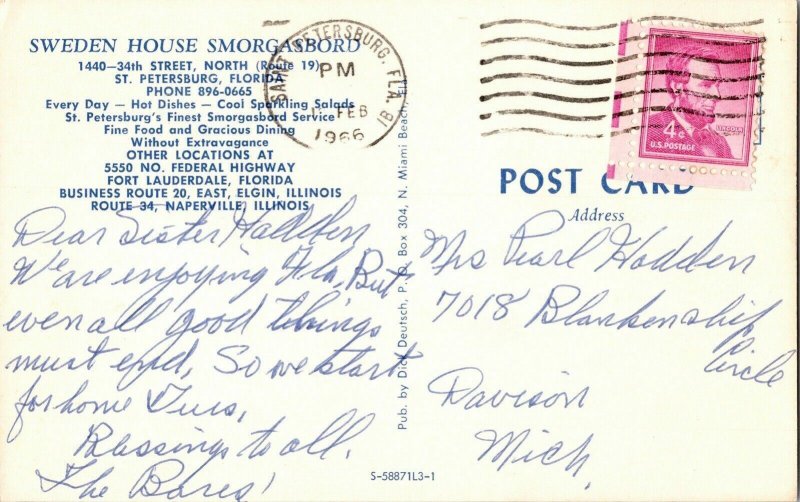 SWEDEN HOUSE SMORGASBORD
1440—34th STREET, NORTH (Route 19)
ST. PETERSBURG, FLORIDA
PHONE 896-0665
Every Day — Hot Dishes — Cool Sparkling Salads
St. Petersburg's Finest Smorgasbord Service
Fine Food and Gracious Dining
Without Extravagance
OTHER LOCATIONS AT
5550 NO. FEDERAL HIGHWAY
FORT LAUDERDALE, FLORIDA
BUSINESS ROUTE 20, EAST, ELGIN, ILLINOIS
ROUTE 34, NAPERVILLE, ILLINOIS
Dear Sister
We are enjoying Fla. But
even all good things
must end, So we start
for home Tues,
Blessings to all.
The Bares!
Pub. by Dick Deutsch, P. O. Box 304, N. Miami Beach, Fla.
S-58871L3-1
SAINT PETERSBURG, FLA.
PM
FEB
1966
4¢
LINCOLN
U.S. POSTAGE
POST CARD
Address
Mrs Pearl Hadden
7018 Blankenship
Circle
Davison
Mich,